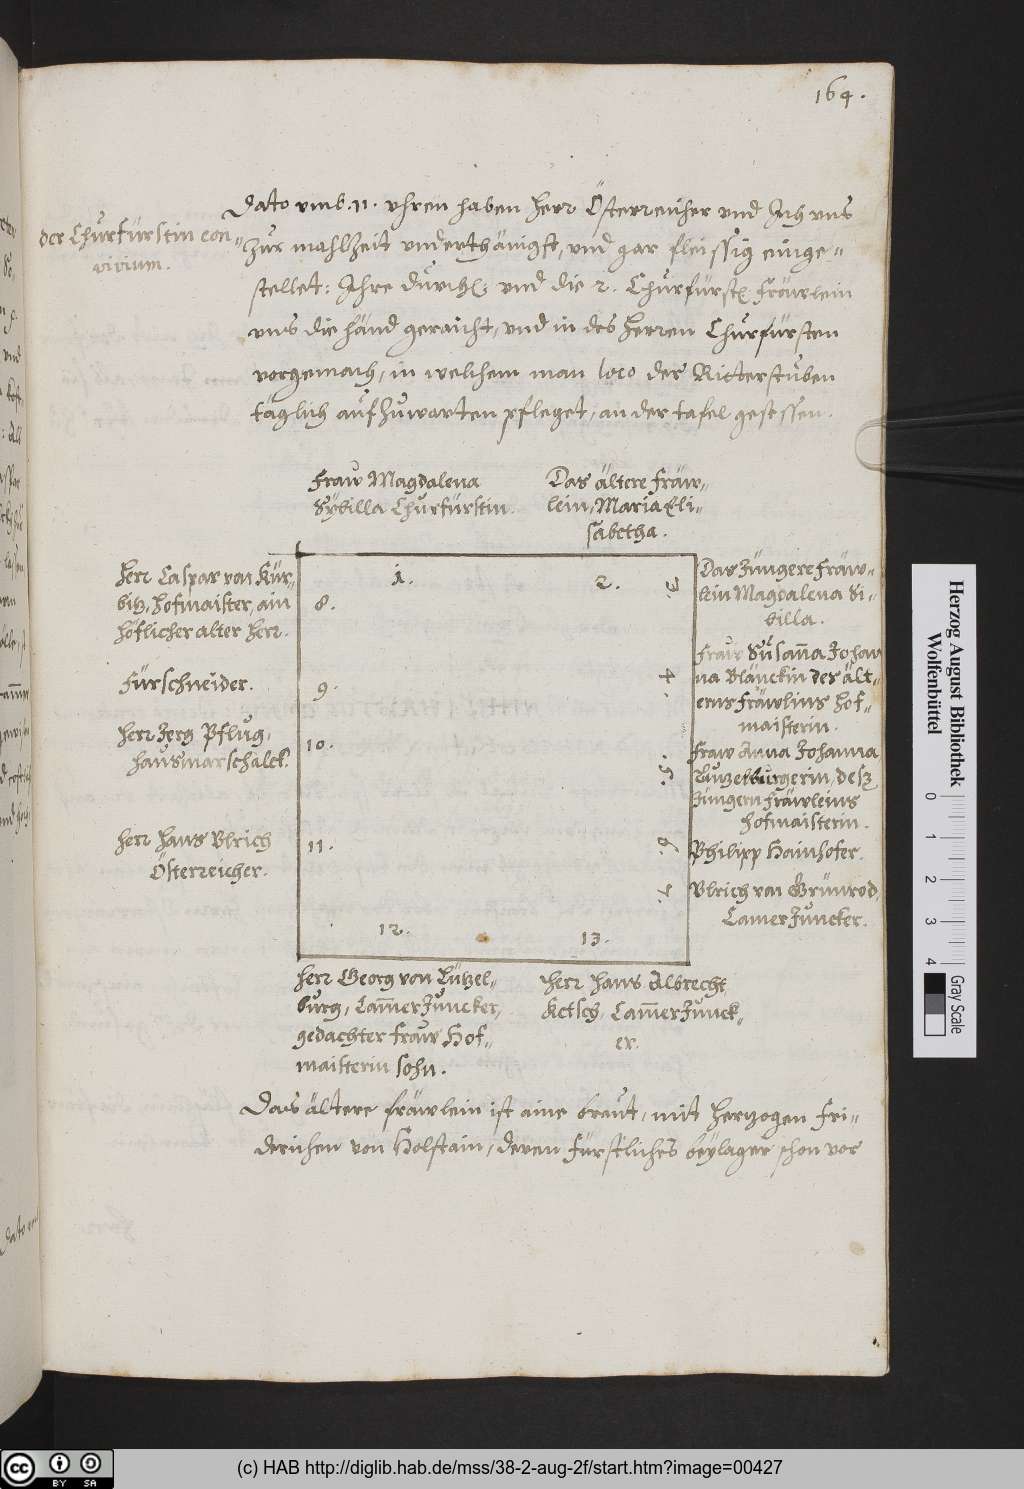 164.
der Churfürstin con-
vivium.
Dato vmb. 11. vhren haben Herr Österreicher vnd Ich vns
zur mahlzeit vnderthänigst, vnd gar fleissig einge-
stellet: Ihre Durchl: vnd die 2. Churfürstl: fräwlein
vns die händ geraicht, vnd in des Herren Churfürsten
vorgemach, in welchem man loco der Ritterstuben
täglich aufzuwarten pfleget, an der tafel gesessen.
Fraw Magdalena
Sÿbilla Churfürstin.
Das ältere fräw-
lein, Maria Eli-
sabetha.
1.
2.
3.
4.
5.
6.
7.
8.
9.
10.
11.
12.
13.
Herr Caspar von Kür-
bitz, Hofmaister, ain
höflicher alter Herr.
Fürschneider.
Herr Jerg Pflug,
Hausmarschalck.
Herr Hans Vlrich
Österreicher.
Das Jüngere fräw-
lein Magdalena Si-
billa.
Fraw Susanna Johan
na Blänckin der ält-
erns fräwlins Hof-
maisterin.
Fraw Anna Johanna
Lützelburgerin, desz
Jüngern fräwleins
Hofmaisterin.
Philipp Hainhofer.
Vlrich von Grünrod,
Camer Juncker.
Herr Georg von Lützel-
burg, Cam̄er Juncker,
gedachter fraw Hof-
maisterin sohn.
Herr Hans Albrecht
Cam̄er Junck-
er.
Das ältere fräwlein ist aine braut, mit Hertzogen Fri-
derichen von Holstain, deren fürstliches beÿlager schon vor
Herzog August Bibliothek
Wolfenbüttel
0 1 2 3 4
Gray Scale
cc BY SA
(c) HAB http://diglib.hab.de/mss/38-2-aug-2f/start.htm?image=00427